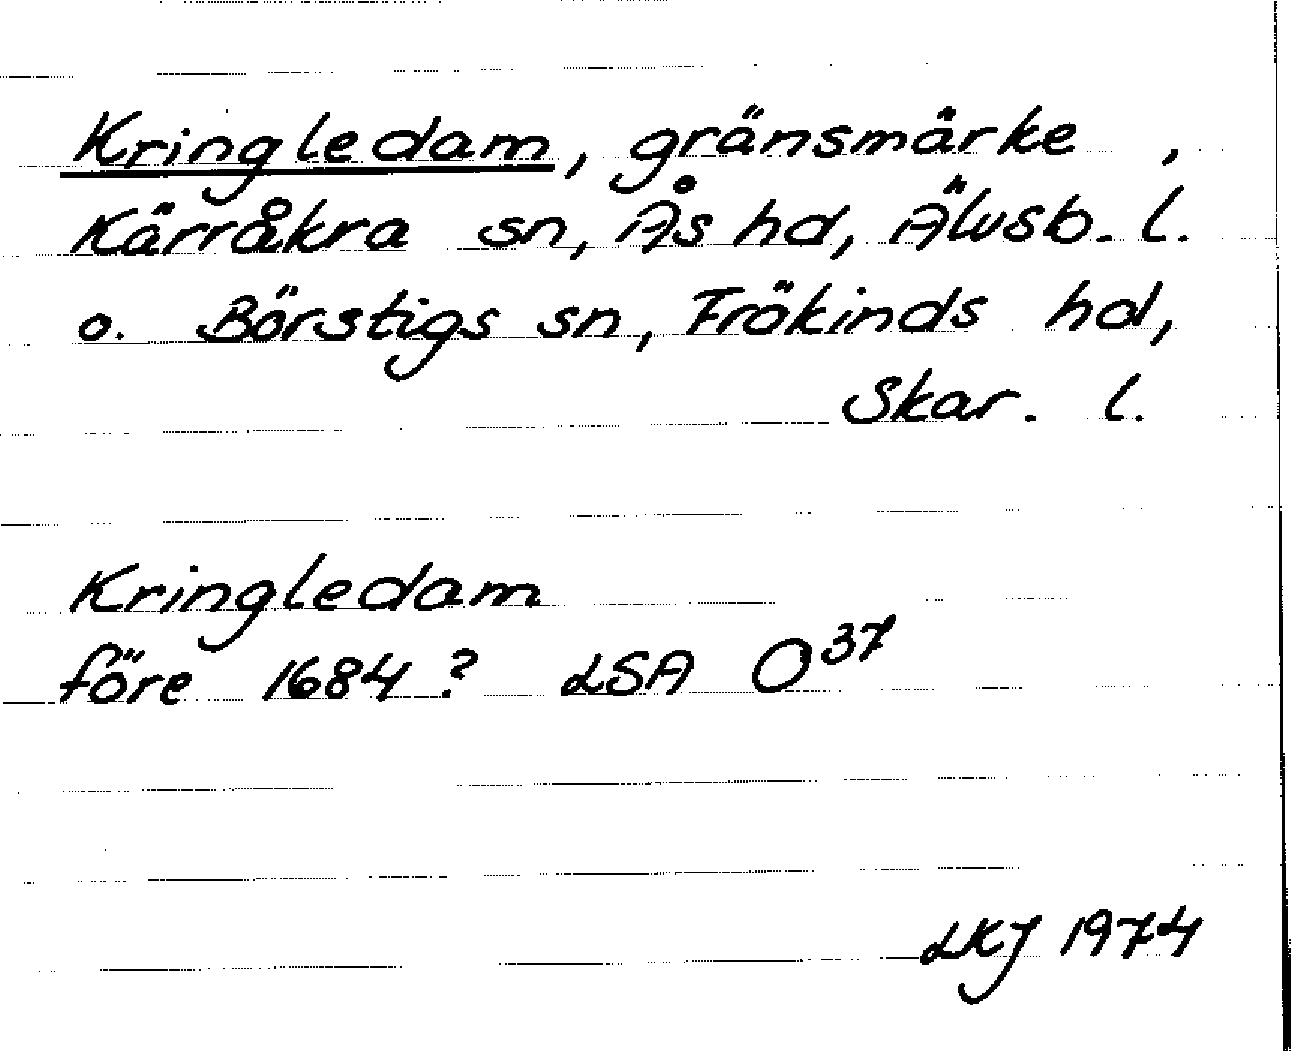 Kringledam, gränsmärke,
Kärråkra sn, Ås hd, Älvsb. l.
o. Börstigs sn, Frökinds hd,
Skar. l.
Kringledam
före 1684? LSA O³⁷
LKJ 1974